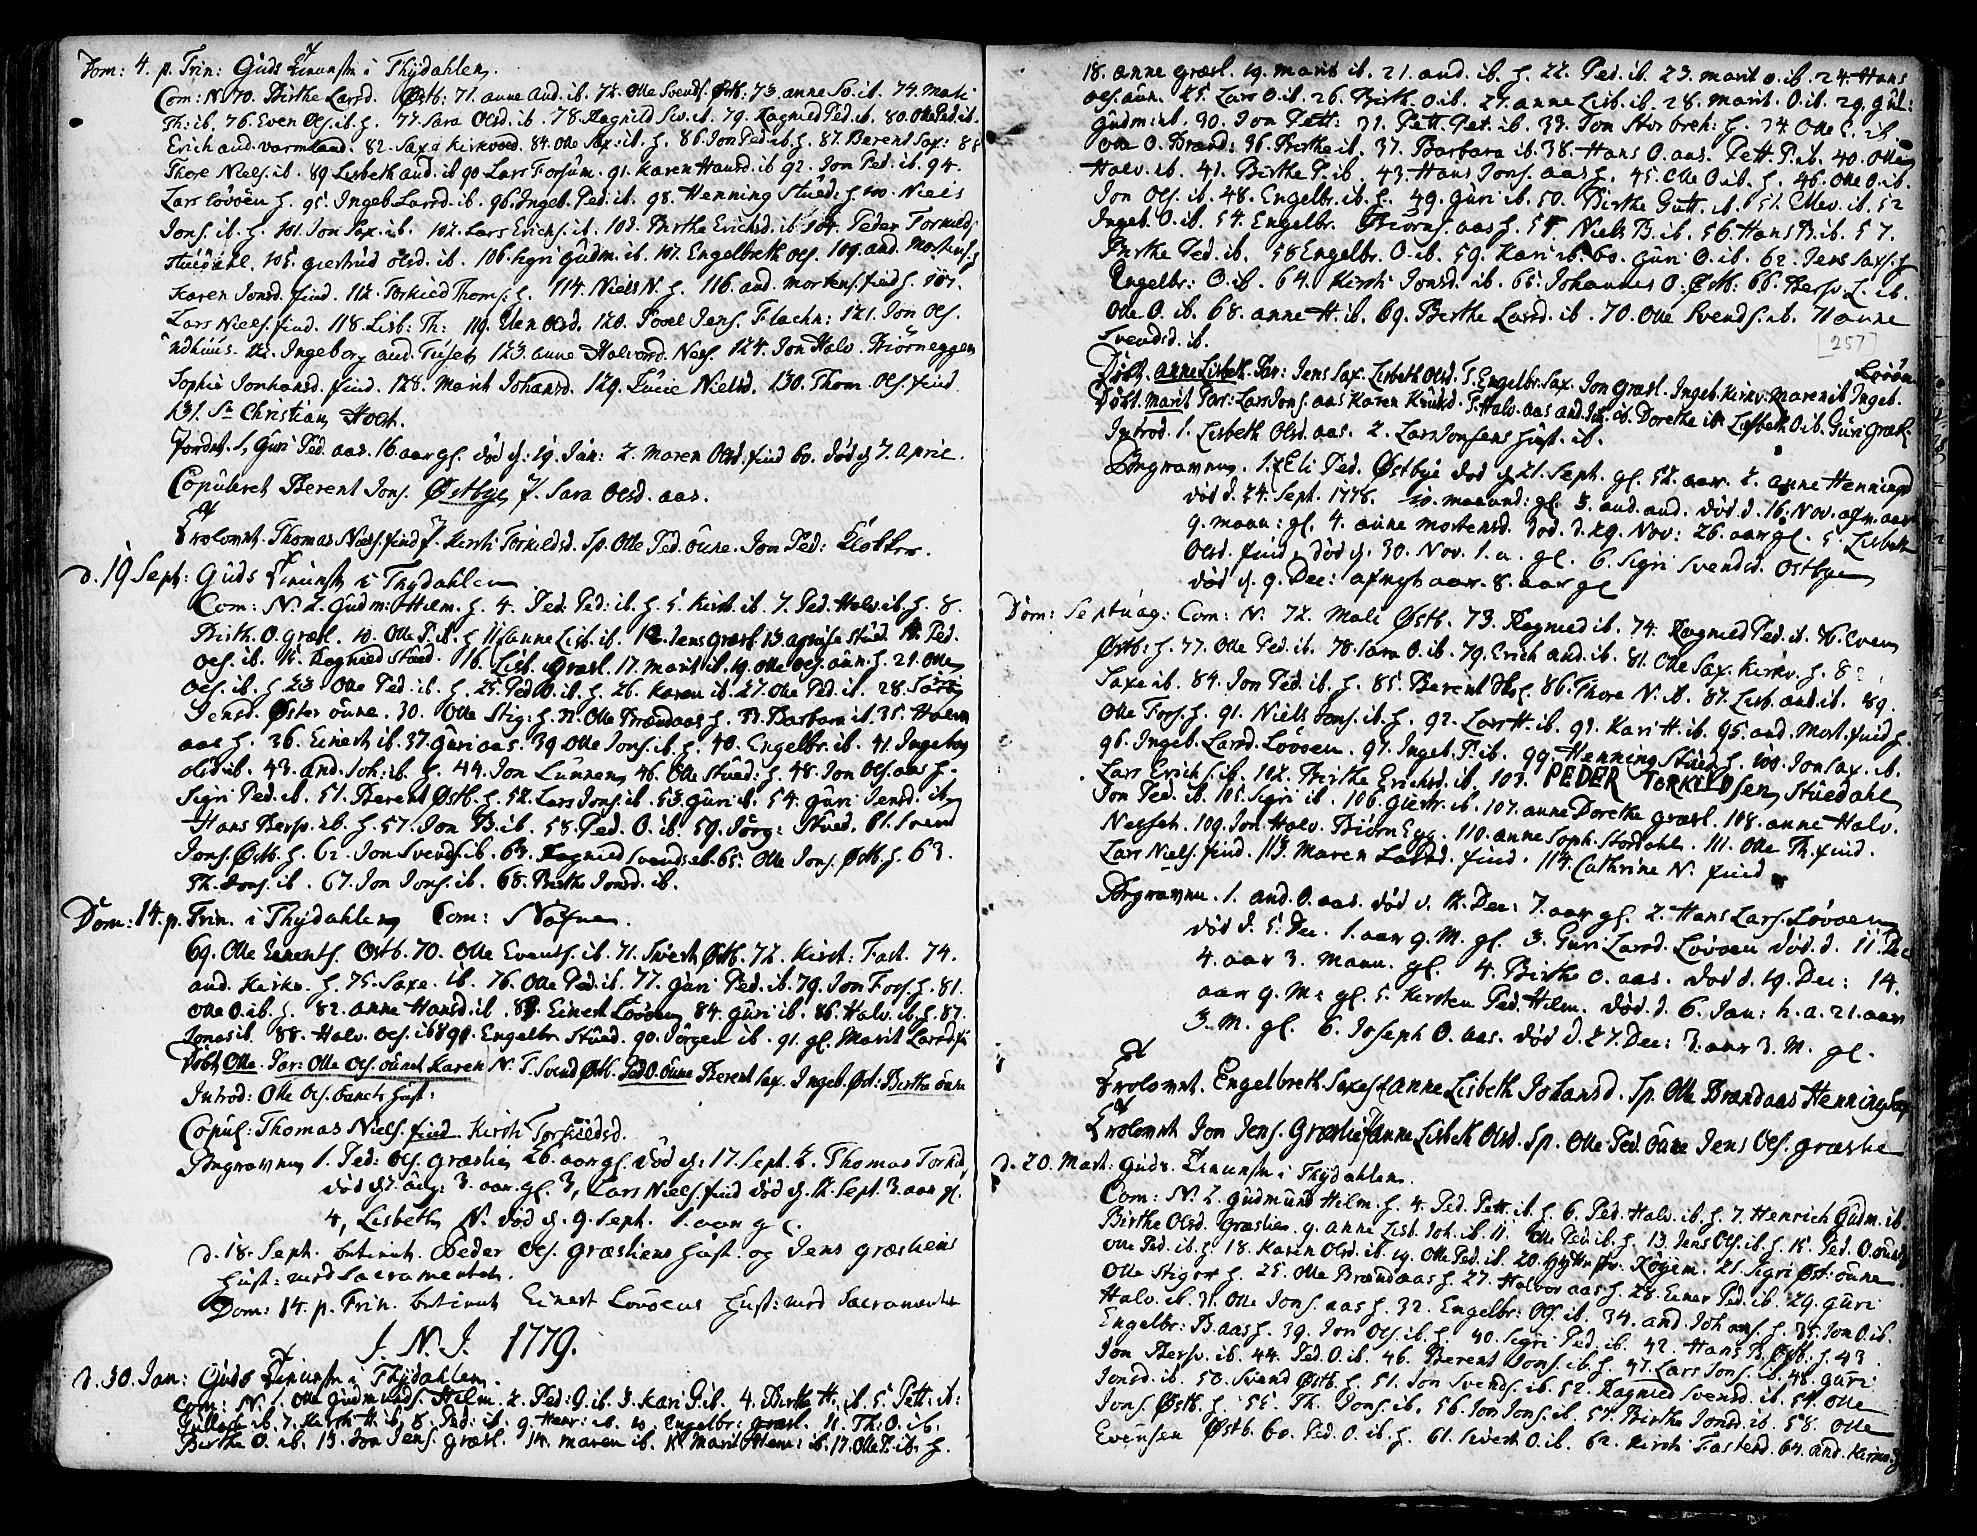 Dom: 4. p. Trin: Guds i Thydahlen.
Com: No 70. Birthe Larsd. Østb: 71. anne And. ib. 72. Olle Svends. Østb. 73. anne Jo. ib. 74. Mali
Th: ib. 76. Even Ols. ib. h. 77. Sara Olsd. ib. 78. Ragnild Siv. ib. 79. Ragnied Ped. ib. 80. Olle Ped. ib.
Erich and. varmland. 82. Saxe Kirkvoed. 84. Olle Sax: ib. h. 86. Jon Ped. ib. h. 87. Berent Sax: 88
Thore Niels. ib. 89 Lisbeth And. ib 90 Lars Forsum. 91. Karen Hansd. ib 92. Jon Ped. ib. 94.
Lars Lövöen h. 95. Ingeb. Larsd. ib. 96. Ingeb. Ped. ib. 98. Henning Stued: h 100. Niels
Jons. ib. h. 101. Jon Sax. ib. 102. Lars Erichs. ib. 103. Birthe Erichsd. ib. 104. Peder Torkilds.
Stuedahl. 105. giertrud olsd. ib. 106. Sigri Gudm. ib. 107. Engelbreth Ols. 109. and. Mortens. h
Karen Jonsd. find. 112. Torkied Thoms. h. 114. Niels N. h. 116. and. mortens. find h. 117.
Lars Niels. find. 118. Lisb: Th: 119. Elen Olsd. 120. Povel Jens. Flachn: 121. Jon Ols.
122. Ingeborg and. 123. anne Halvord. Ness. 124. Jon Halv. Biörneggen
Sophie Jonhansd. find. 128. Marit Johansd. 129. Lucie Nielsd. 130. Thom. Ols. find.
131. Sr Christian Holt.
1, Guri Ped. aas. 16. aar gl. död d: 19. Jan: 2. Maren Olsd. find 60. död d 7. April.
Copuleret Berent Jons. Østbye Sara Olsd. aas.
Trolovet. Thomas Niels. find Kirsti Torkildsd. Sp. Olle Ped. öune. Jon Ped:
d. 19 Sept: Guds i Thydahlen
Com: No 2. Gudm: Hilm. h. 4. Ped. Ped: ib. h 5. Kirst. ib. 7. Ped. Halv. ib. h. 8.
Birth. O. græsl. 10. Olle P. ib. h 11. anne Lisb. ib. 12. Jens græsl. 13 agnise Stued. 14. Ped.
Ols. ib. 15. Ragnied Stued. 16. Lisb. Græsl. 17. marit ib. 19. Olle Ols. öun. h. 21. Olle
Ols. ib. h 23. Olle Ped. ib. h. 25. Ped O. ib. h. 26. Karen ib. 27. Olle Ped. ib. 28.
Jensd. Öster öune. 30. Olle Stig: h. 32. Olle Brændaas h. 33. Barbara ib. 35.
aas h. 36. Einert ib. 37. Guri aas. 39. Olle Jons. ib. h. 40. Engelbr. ib. 41. Ingeborg
Olsd ib. 43. and. Joh: ib. h. 44. Jon Lunnen 46. Olle Stued: h. 48. Jon Ols. aas h.
Sigri Ped. ib. 51. Berent Østb. h. 52. Lars Jons. ib. 53. Guri ib. 54. Guri Jensd. ib.
Hans Bersv. ib. h. 57. Jon B. ib. 58. Ped. O. ib. 59. Jörg: Stued. 61. Svend
Jons. Østb. h. 62. Jon Svends. ib. 63. Ragnied Svendsd. ib. 65. Olle Jons. Østb. h. 63.
Th. Jons. ib. 67. Jon Jons. ib. 68. Birthe Jonsd. ib.
Dom: 14. p. Trin. i Thydahlen Com:
69. Olle Einerts. Østb. 70. Olle Events. ib. 71. Sivert Østb. 72. Kirst: Fast. 74.
and. Kirkv. h. 75. Saxe. ib. 76. Olle Ped. ib. 77. Guri Ped. ib. 79. Jon Fors. h. 81.
Olle O. ib. h. 82. anne Hansd. ib. 83. Einert Lövöen 84. Guri ib. 86. Halv. ib. h. 87.
Jonas ib. 88. Halv. Ols. ib 89. Engelbr. Stued. 90. Jörgen ib. 91. gl. Marit Larsd.
Döbt Olle. Par: Olle Ols. Karen N. T. Svend Østb. Ped O. öune Berent Sax. Ingeb. Øst: Birthe öune
Introd: Olle Ols. hust:
Copul: Thomas Niels. find Kirsti Torkildsd.
Begravne 1. Ped: Ols. græslie 26. aar gl. död d: 17. Sept. 2. Thomas Torkilds.
död d 7. aug: 3. aar. gl. 3, Lars Niels. find död d. 12. Sept. 3. aar gl.
4, Lisbeth N. död d. 9. Sept. 1. aar gl.
d. 18. Sept. betient. Peder Ols. Græsliens hust. og Jens græsliens
hust: med Sacramentet.
Dom: 14. p. Trin. betient Einert Lövöens hust: med Sacramentet
J. N. J. 1779.
d. 30. Jan: Guds i Thydahlen.
Com: No 1. Olle Gudmunds. Hilm. 2. Ped: O. ib. 3. Kari P. ib. 4. Birthe H. ib. 5. Pett: ib:
ib. 7. Kirst. H. ib. 8. Ped: ib. 9. Henr: ib. 10. Engelbr: græsl. 11. Th: O. ib.
Birthe O. ib. 13. Jon Jens. græsl. 14. maren ib. 15. Marit Henr: ib. 17. Olle P. ib. h.
18. anne græsl. 19. marit ib. 21. and. ib. h. 22. Ped. ib. 23. marit o. ib. 24. Hans
Ols. öun. 25. Lars O. ib. 26. Birth. O. ib. 27. anne Lisb. ib. 28. Marit. O. ib. 29. Gul:
Gudm: ib. 30. Jon Pett: 31. Pett. Pet. ib. 33. Jon Storbreh: h. 34. Olle E. ib.
Olle O. Brænd: 36. Birthe ib. 37. Barbara ib. 38. Hans O. aas. Pett. P. ib. 40. Olle
Halv. ib. 41. Birthe P. ib. 43. Hans Jons. aas h. 45. Olle O. ib. h. 46. Olle O. ib.
Jon Ols. ib. 48. Engelbr. ib. h. 49. Guri ib. 50. Birthe Gutt. ib. 51. Elev. ib. 52
Ingeb. O. ib. 54. Engelbr. Biörns. aas h. 55 Niels B. ib. 56. Hans B. ib. 57.
Birthe Ped. ib. 58 Engelbr. O. ib. 59. Kari ib. 60. Guri O. ib. 62. Jens Sax. h
Engelbr: O. ib. 64. Kirsti Jonsd. ib. 65. Johannes O. Østb: 66. Bersv. L. ib.
Olle O. ib. 68. anne H. ib. 69. Birthe Larsd. ib. 70. Olle Svends. ib. 71 anne
Svendsd. ib.
[257]
Döbt. Anne Lisbeth. Par: Jens Sax. Lisbeth Olsd. T. Engelbr. Sax. Jon græsl. Ingeb. Kirkv. Maren ib Ingeb. Lövöen
Döbt. Marit Par: Lars Jons. aas Karen Knudsd. T. Halv. aas and. Joh. ib. Dorethe ib. Lisbeth O. ib. Guri Græsl.
Introd. 1. Lisbeth Olsd. aas. 2. Lars Jonsens hust. ib.
Begravne. 1. Eli Ped. Østbye död d 21. Sept. gl. 52. aar. 2. anne Henningsd
död d. 24. Sept. 1778. 10. maaned: gl. 3. and. and. död d. 16. Nov.
9. maan: gl. 4. anne mortensd. död. d. 29. Nov: 26. aar gl. 5. Lisbeth
Olsd. find. död d. 30. Nov. 1. a. gl. 6. Sigri Svendsd. Østbye
död d. 9. Dec: 8. aar gl
Dom: Septuag: Com: No. 72. Mali Østb. 73. Ragnied ib. 74. Ragnied Ped. ib. 76. Even
Østb: h. 77. Olle Ped. ib. 78. Sara O. ib. 79. Erich And. ib. 81. Olle Sax. Kirkv. h. 8
Saxe ib. 84. Jon Ped. ib. h. 85. Berent 86. Thore N. ib. 87. Lisb. And. ib. 89.
Olle Fors. h. 91. Niels Jons. ib. h. 92. Lars H. ib. 93. Kari H. ib. 95. and. Mort. find h.
96. Ingeb. Larsd. Lövöen. 97. Ingeb. P. ib. 99. Henning Stued. h. 100. Jon Sax. ib.
Lars Erichs. ib. 102. Birthe Erichsd. ib. 103. PEDER TORKILDSen Stuedahl
Jon Ped. ib. 105. Sigri ib. 106. Giertr. ib. 107. anne Dorethe græsl. 108. anne Halv.
Nesset. 109. Jon Halv. Biörnegg. 110. anne Soph. Stordahl. 111. Olle Th. find.
Lars Niels. find. 113. Maren Larsd. find. 114. Cathrine N. find
Begravne. 1. and. O. aas. död d. 12. Dec: 7. aar gl. 2. Hans Lars. Lövöen
död d. 5. Dec. 1. aar 9. M. gl. 3. Guri Larsd. Lövöen död. d. 11. Dec
4. aar 3. Maan. gl. 4. Birthe O. aas. död d. 19. Dec: 14.
aar 9. M: gl. 5. Kirsten Ped. Hilm. död. d. 6. Jan: h. a. 21. aar
3. M. gl. 6. Joseph O. aas. död d. 27. Dec: 3. aar 3. M. gl.
Trolovet. Engelbreth Saxes. anne Lisbeth Johansd. Sp. Olle Brændaas Henning Sax.
Trolovet Jon Jens. Græslie anne Lisbeth Olsd. Sp. Olle Ped. öune Jens Ols. græslie
d. 20. Mart: Guds. i Thydahlen.
Com: No. 2. Gudmund Hilm. h. 4. Ped. Pett. ib. h 6. Ped. Halv. ib. h. 7. Henrich Gudm. ib.
Birthe Olsd. græslie. 9. anne Lisb. Joh. ib. 11. Olle Ped. ib. h. 13 Jens Ols. ib. h. 15. Ped. O. öune
Olle Ped. ib. h. 18. Karen Olsd. ib. 19. Olle Ped. ib. 20. Röyem. 21. Sigri Øst: öune.
Olle Stiger h. 25. Olle Brændaas h. 27. Halvor aas h. 28. Einer Ped. ib. 29. Guri
Halv. ib. 31. Olle Jons. aas h. 32. Engelbr: Ols. ib. 34. and. Johans. h. 35. Jon O. ib.
Engelbr: B. aas h. 39. Jon Ols. ib. h. 40. Sigri Ped. ib. 42. Hans B. Østb. h. 43.
Jon Bersv. ib. 44. Ped. O. ib. 46. Berent Jons. ib. h. 47. Lars Jons. ib. 48. Guri
Jonsd. ib. 50. Svend Østb h. 51. Jon Svends. ib. 52. Ragnied Svensd. ib. 54. Olle
Jons. Østb. h. 55. Th. Jons. ib. 56. Jon Jons. ib. 57. Birthe Jonsd. ib. 58. Olle
Evensen Østb. 60. Ped. O. ib. h. 61. Sivert O. ib. 62. Kirsti Fasterd. 64. And. Kirkv. h